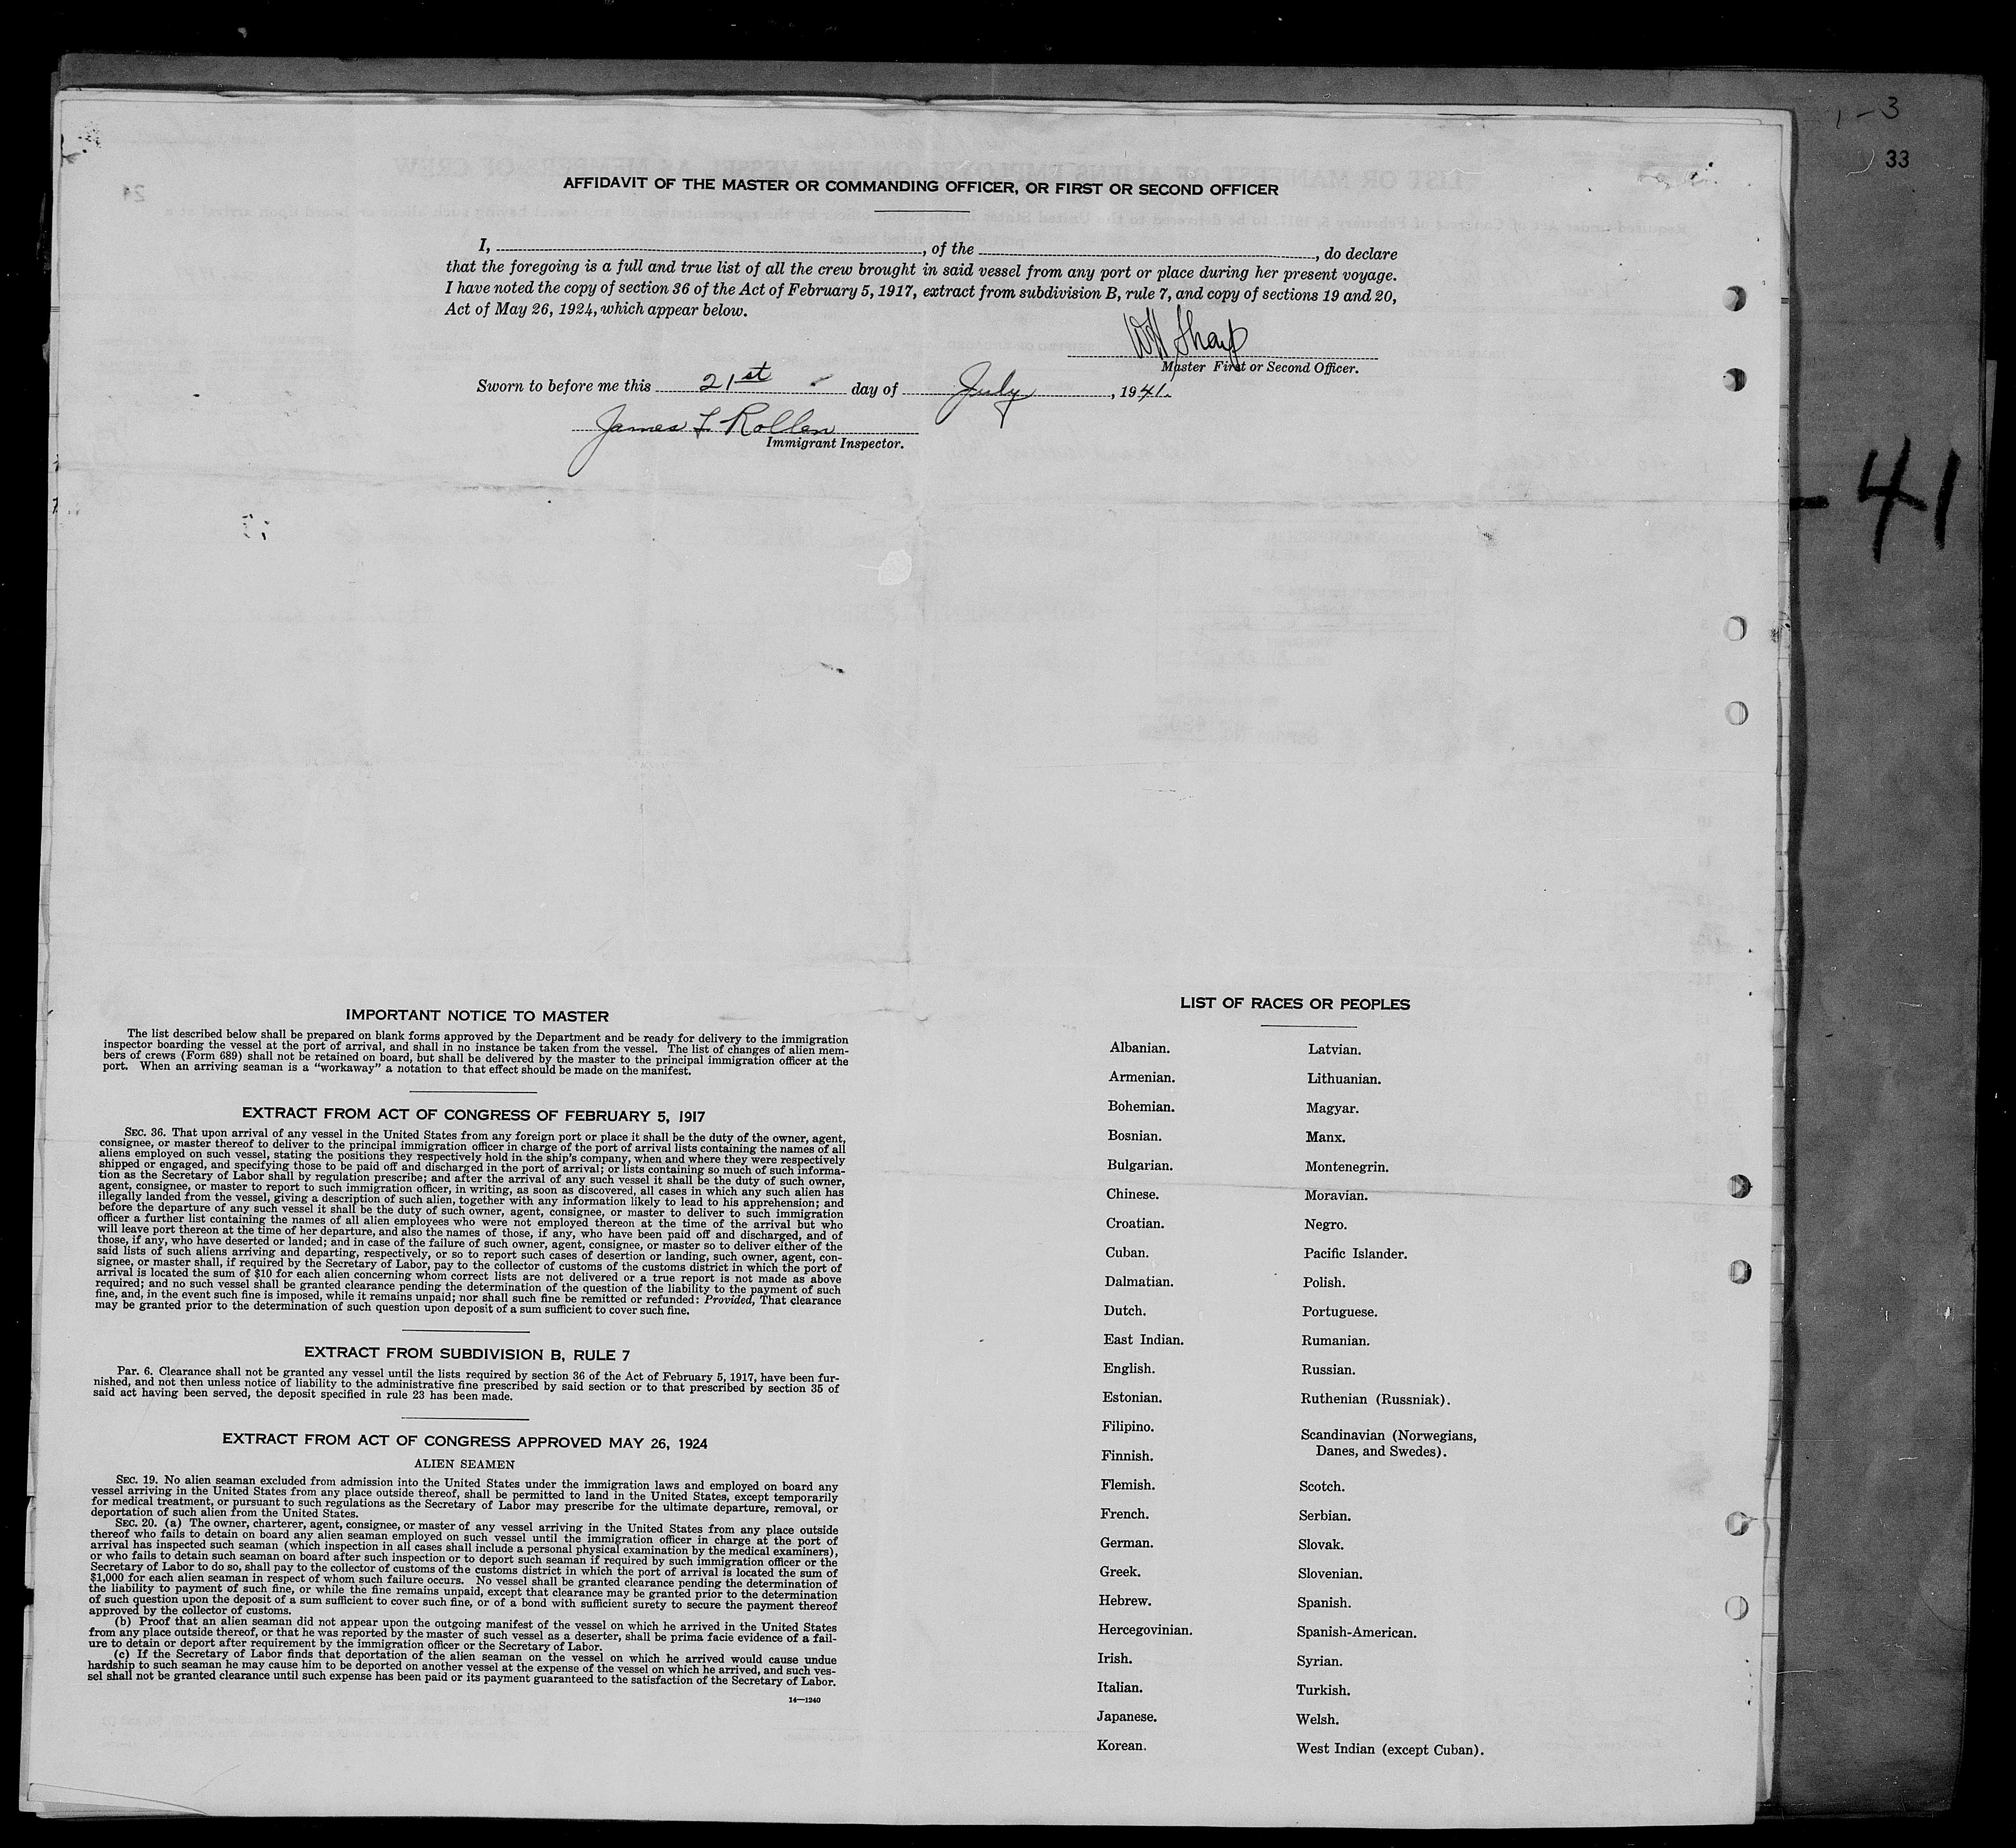 1-3
33
AFFIDAVIT OF THE MASTER OR COMMANDING OFFICER, OR FIRST OR SECOND OFFICER
I, , of the , do declare
that the foregoing is a full and true list of all the crew brought in said vessel from any port or place during her present voyage.
I have noted the copy of section 36 of the Act of February 5, 1917, extract from subdivision B, rule 7, and copy of sections 19 and 20,
Act of May 26, 1924, which appear below.
WH Sharp
Master First or Second Officer.
Sworn to before me this 21st day of July, 1941.
James L Rollen
Immigrant Inspector.
-41
IMPORTANT NOTICE TO MASTER
The list described below shall be prepared on blank forms approved by the Department and be ready for delivery to the immigration
inspector boarding the vessel at the port of arrival, and shall in no instance be taken from the vessel. The list of changes of alien mem-
bers of crews (Form 689) shall not be retained on board, but shall be delivered by the master to the principal immigration officer at the
port. When an arriving seaman is a "workaway" a notation to that effect should be made on the manifest.
EXTRACT FROM ACT OF CONGRESS OF FEBRUARY 5, 1917
SEC. 36. That upon arrival of any vessel in the United States from any foreign port or place it shall be the duty of the owner, agent,
consignee, or master thereof to deliver to the principal immigration officer in charge of the port of arrival lists containing the names of all
aliens employed on such vessel, stating the positions they respectively hold in the ship's company, when and where they were respectively
shipped or engaged, and specifying those to be paid off and discharged in the port of arrival; or lists containing so much of such informa-
tion as the Secretary of Labor shall by regulation prescribe; and after the arrival of any such vessel it shall be the duty of such owner,
agent, consignee, or master to report to such immigration officer, in writing, as soon as discovered, all cases in which any such alien has
illegally landed from the vessel, giving a description of such alien, together with any information likely to lead to his apprehension; and
before the departure of any such vessel it shall be the duty of such owner, agent, consignee, or master to deliver to such immigration
officer a further list containing the names of all alien employees who were not employed thereon at the time of the arrival but who
will leave port thereon at the time of her departure, and also the names of those, if any, who have been paid off and discharged, and of
those, if any, who have deserted or landed; and in case of the failure of such owner, agent, consignee, or master so to deliver either of the
said lists of such aliens arriving and departing, respectively, or so to report such cases of desertion or landing, such owner, agent, con-
signee, or master shall, if required by the Secretary of Labor, pay to the collector of customs of the customs district in which the port of
arrival is located the sum of $10 for each alien concerning whom correct lists are not delivered or a true report is not made as above
required; and no such vessel shall be granted clearance pending the determination of the question of the liability to the payment of such
fine, and, in the event such fine is imposed, while it remains unpaid; nor shall such fine be remitted or refunded: Provided, That clearance
may be granted prior to the determination of such question upon deposit of a sum sufficient to cover such fine.
EXTRACT FROM SUBDIVISION B, RULE 7
Par. 6. Clearance shall not be granted any vessel until the lists required by section 36 of the Act of February 5, 1917, have been fur-
nished, and not then unless notice of liability to the administrative fine prescribed by said section or to that prescribed by section 35 of
said act having been served, the deposit specified in rule 23 has been made.
EXTRACT FROM ACT OF CONGRESS APPROVED MAY 26, 1924
ALIEN SEAMEN
SEC. 19. No alien seaman excluded from admission into the United States under the immigration laws and employed on board any
vessel arriving in the United States from any place outside thereof, shall be permitted to land in the United States, except temporarily
for medical treatment, or pursuant to such regulations as the Secretary of Labor may prescribe for the ultimate departure, removal, or
deportation of such alien from the United States.
SEC. 20. (a) The owner, charterer, agent, consignee, or master of any vessel arriving in the United States from any place outside
thereof who fails to detain on board any alien seaman employed on such vessel until the immigration officer in charge at the port of
arrival has inspected such seaman (which inspection in all cases shall include a personal physical examination by the medical examiners),
or who fails to detain such seaman on board after such inspection or to deport such seaman if required by such immigration officer or the
Secretary of Labor to do so, shall pay to the collector of customs of the customs district in which the port of arrival is located the sum of
$1,000 for each alien seaman in respect of whom such failure occurs. No vessel shall be granted clearance pending the determination of
the liability to payment of such fine, or while the fine remains unpaid, except that clearance may be granted prior to the determination
of such question upon the deposit of a sum sufficient to cover such fine, or of a bond with sufficient surety to secure the payment thereof
approved by the collector of customs.
(b) Proof that an alien seaman did not appear upon the outgoing manifest of the vessel on which he arrived in the United States
from any place outside thereof, or that he was reported by the master of such vessel as a deserter, shall be prima facie evidence of a fail-
ure to detain or deport after requirement by the immigration officer or the Secretary of Labor.
(c) If the Secretary of Labor finds that deportation of the alien seaman on the vessel on which he arrived would cause undue
hardship to such seaman he may cause him to be deported on another vessel at the expense of the vessel on which he arrived, and such ves-
sel shall not be granted clearance until such expense has been paid or its payment guaranteed to the satisfaction of the Secretary of Labor.
14—1240
LIST OF RACES OR PEOPLES
Albanian.
Armenian.
Bohemian.
Bosnian.
Bulgarian.
Chinese.
Croatian.
Cuban.
Dalmatian.
Dutch.
East Indian.
English.
Estonian.
Filipino.
Finnish.
Flemish.
French.
German.
Greek.
Hebrew.
Hercegovinian.
Irish.
Italian.
Japanese.
Korean.
Latvian.
Lithuanian.
Magyar.
Manx.
Montenegrin.
Moravian.
Negro.
Pacific Islander.
Polish.
Portuguese.
Rumanian.
Russian.
Ruthenian (Russniak).
Scandinavian (Norwegians,
Danes, and Swedes).
Scotch.
Serbian.
Slovak.
Slovenian.
Spanish.
Spanish-American.
Syrian.
Turkish.
Welsh.
West Indian (except Cuban).